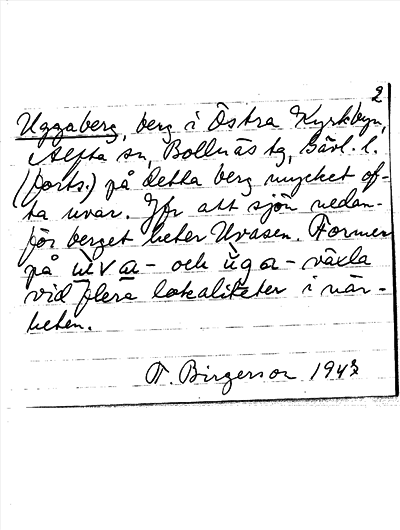 2
Uggaberg, berg i Östra Kyrkbyn,
Alfta sn, Bollnäs tg, Gävl. l.
(forts.) på detta berg mycket of-
ta uvar. Jfr att sjön nedan-
för berget heter Uvasen. Former
på ùva- och ùga- växla
vid flera lokaliteter i när-
heten.
T. Birgerson 1947